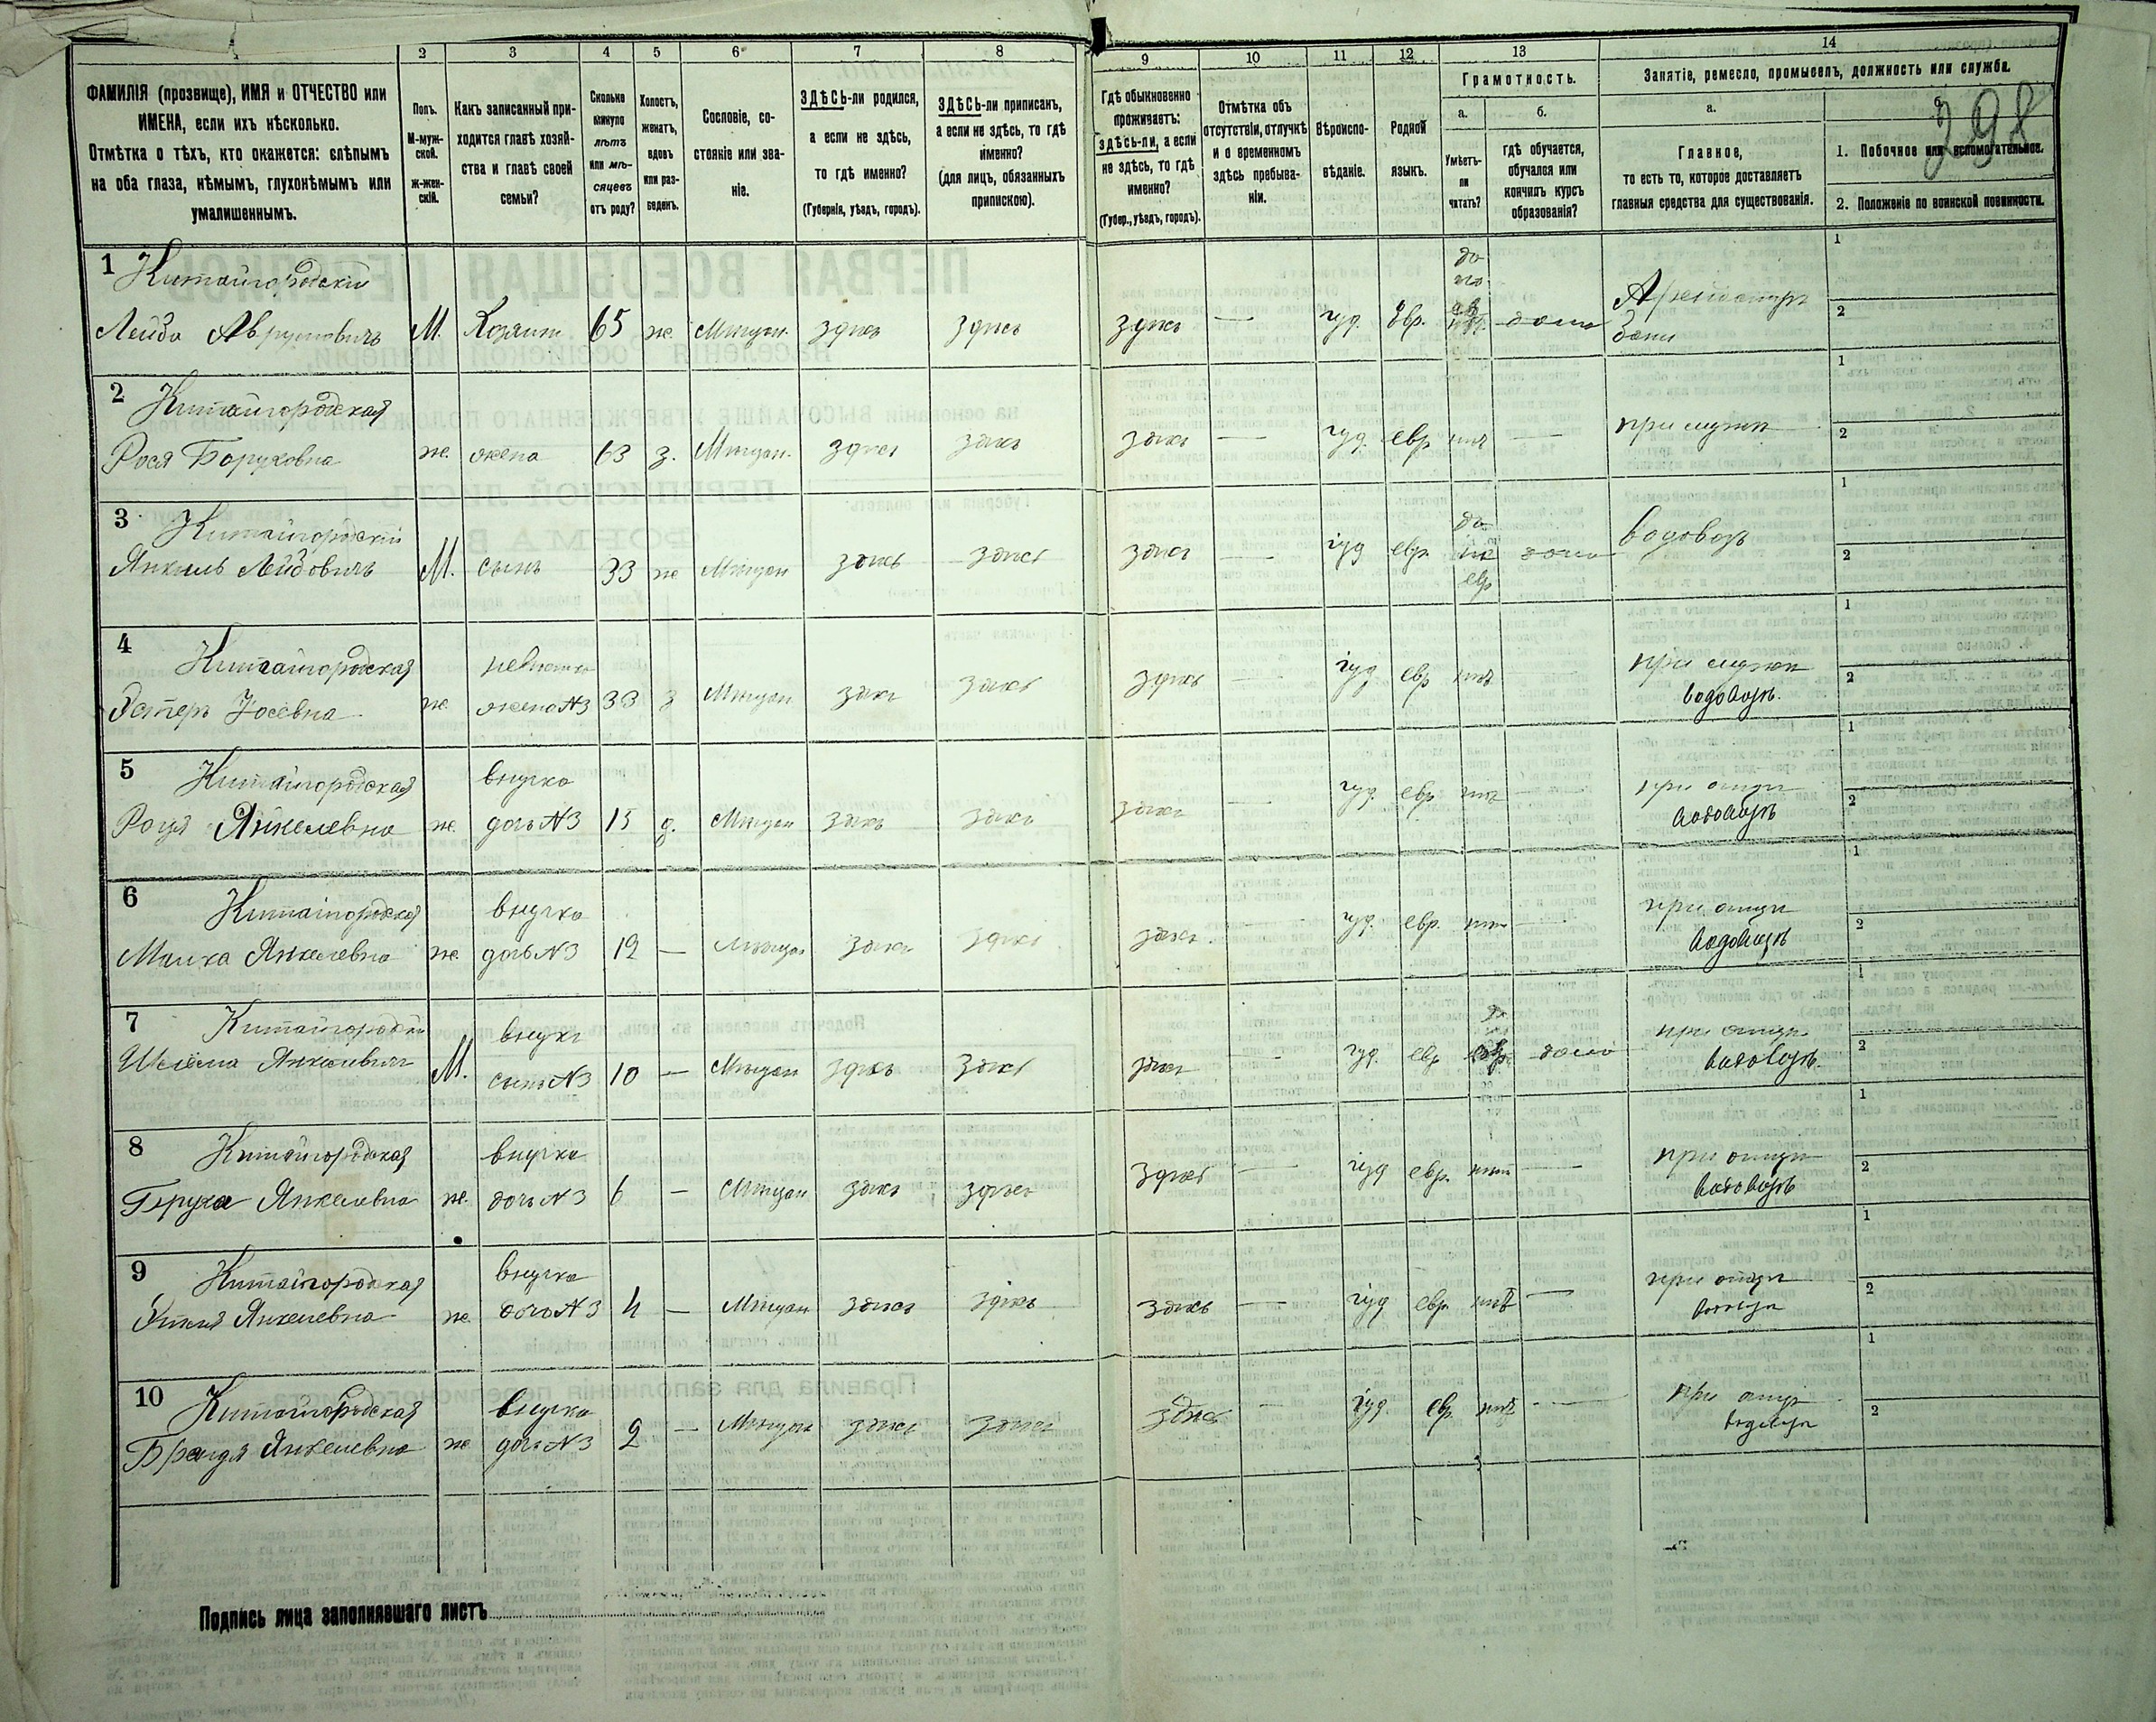 1 2 3 4 5 6 7 8 9 10 11 12 13 14
ФАМИЛІЯ (прозвище), ИМЯ и ОТЧЕСТВО или
ИМЕНА, если ихъ нѣсколько.
Отмѣтка о тѣхъ, кто окажется: слѣпымъ
на оба глаза, нѣмымъ, глухонѣмымъ или
умалишеннымъ.
Полъ.
М-муж-
ской.
Ж-жен-
скій.
Какъ записанный при-
ходится главѣ хозяй-
ства и главѣ своей
семьи?
Сколько
минуло
лѣтъ
или мѣ-
сяцевъ
отъ роду?
Холостъ,
женатъ,
вдовъ
или раз-
веденъ.
Сословіе, со-
стояніе или зва-
ніе.
ЗДѢСЬ-ли родился,
а если не здѣсь,
то гдѣ именно?
(Губернія, уѣздъ, городъ).
ЗДѢСЬ-ли приписанъ,
а если не здѣсь, то гдѣ
именно?
(для лицъ, обязанныхъ
припискою).
Гдѣ обыкновенно
проживаетъ:
здѣсь-ли, а если
не здѣсь, то гдѣ
именно?
(Губер., уѣздъ, городъ).
Отмѣтка объ
отсутствіи, отлучкѣ
и о временномъ
здѣсь пребыва-
ніи.
Вѣроиспо-
вѣданіе.
Родной
языкъ.
Грамотность.
а.
Умѣетъ-
ли
читать?
б.
гдѣ обучается,
обучался или
кончилъ курсъ
образованія?
Занятіе, ремесло, промыселъ, должность или служба.
а.
Главное,
то есть то, которое доставляетъ
главныя средства для существованія.
б.
398
1. Побочное или вспомогательное.
2. Положеніе по воинской повинности.
1 Китайгородскій
Лейба Аврумовичъ М. Хозяинъ 65 ж. Мѣщан. здѣсь здѣсь здѣсь — іуд. Евр. дома Арендаторъ
бани
2 Китайгородская
Рося Боруховна ж. жена 63 з. Мѣщан. здѣсь здѣсь здѣсь — іуд. евр нѣт — при мужѣ
3 Китайгородскій
Янкель Лейбовичъ М. сынъ 33 ж Мѣщан здѣсь здѣсь здѣсь — іуд евр. да
на
евр дома водовозъ
4 Китайгородская невѣстка
Эстеръ Іосевна ж. жена N3 33 з Мѣщан здѣсь здѣсь здѣсь — іуд. евр нѣт при мужѣ
водовозъ.
5 Китайгородская внучка
Янкелевна ж. дочь N3 15 д. Мѣщан здѣсь здѣсь здѣсь — іуд. евр нѣт — при отцѣ
водовозъ
6 Китайгородская внучка
Малка Янкелевна ж. дочь N3 12 — Мѣщан здѣсь здѣсь здѣсь. іуд. евр. нѣт — при отцѣ
водовозъ
7 Китайгородскій внукъ
Шлёма Янкелевич М. сынъ N3 10 — Мѣщан здѣсь здѣсь здѣсь - іуд. евр дома при отцѣ
водовозъ.
8 Китайгородская внучка
Янкелевна ж. дочь N3 6 — Мѣщан здѣсь здѣсь здѣсь — іуд евр. нѣт — при отцѣ
водовозъ
9 Китайгородская внучка
Янкелевна ж. дочь N3 4 — Мѣщан здѣсь здѣсь здѣсь — іуд евр. нѣт — при отцѣ
10 Китайгородская внучка
Брейндя Янкелевна ж дочь N3 2 — Мѣщан здѣсь здѣсь здѣсь - іуд. евр. нѣт — при отцѣ
водовоза
Подпись лица заполнявшаго листъ